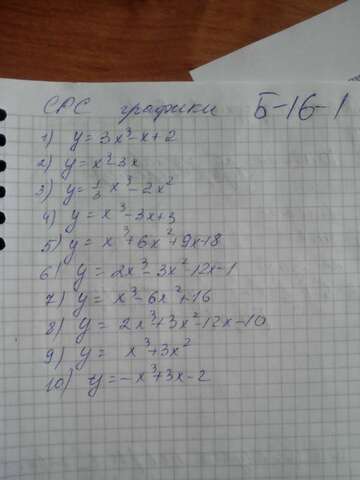 СРС графики Б-16-1
1) y = 3x³-x+2
2) y = x³-3x
3) y = 1/3 x³-2x²
4) y = x³-3x+3
5) y = x³+6x²+9x+8
6) y = 2x³-3x²-12x-1
7) y = x³-6x²+16
8) y = 2x³+3x²-12x-10
9) y = x³+3x²
10) y = -x³+3x-2